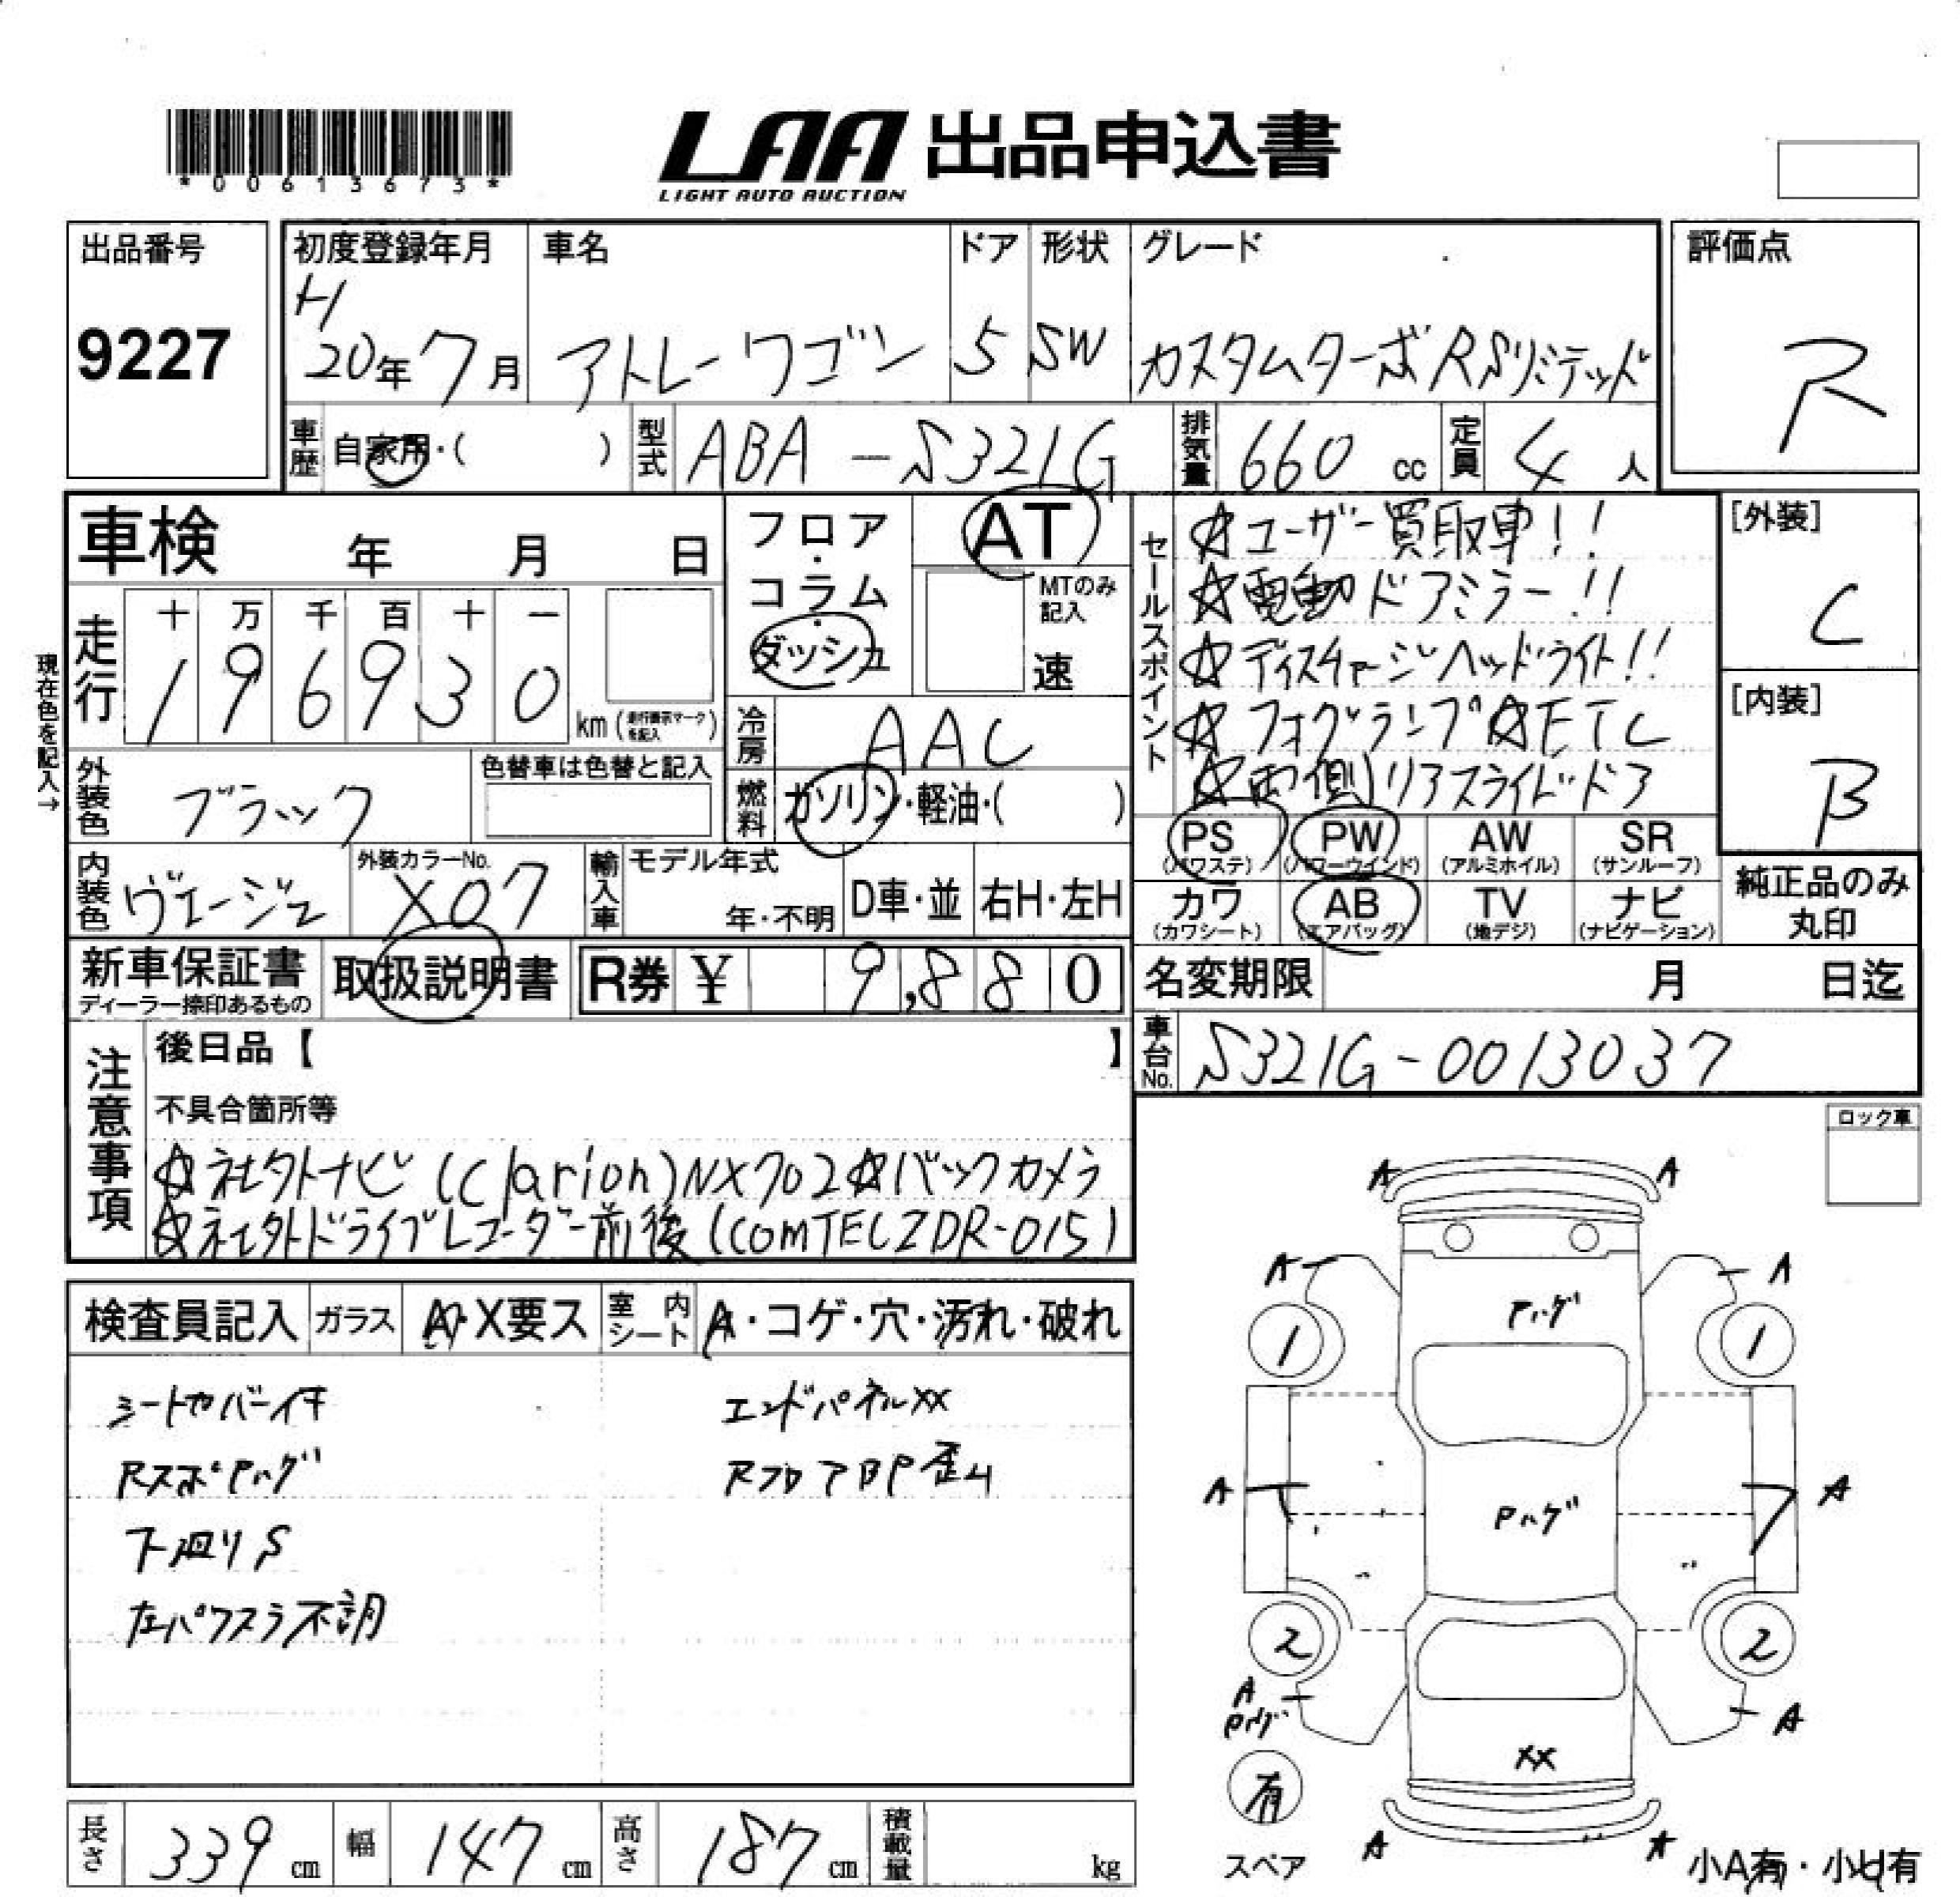 *00613673*
LAA 出品申込書
LIGHT AUTO AUCTION
出品番号
9227
初度登録年月
H
20年7月
車名
アトレーワゴン
ドア
5
形状
SW
グレード
カスタムターボRSリミテッド
評価点
R
車歴 自家用・( )
型式 ABA-S321G
排気量 660cc
定員 4人
車検 年 月 日
現在色を記入→
走行
十 万 千 百 十 一
1 9 6 9 3 0
km(走行表示マークを記入)
フロア・コラム・ダッシュ
AT
MTのみ記入
速
冷房 AAC
燃料 ガソリン・軽油・( )
セールスポイント
☆ユーザー買取車!!
☆電動ドアミラー!!
☆ディスチャージヘッドライト!!
☆フォグランプ☆ETC
☆両側リアスライドドア
[外装]
C
[内装]
B
外装色 ブラック
色替車は色替と記入
内装色 ヴェージュ
外装カラーNo.
X07
輸入車 モデル年式
年・不明
D車・並 右H・左H
PS (パワステ)
PW (パワーウインド)
AW (アルミホイル)
SR (サンルーフ)
カワ (カワシート)
AB (エアバッグ)
TV (地デジ)
ナビ (ナビゲーション)
純正品のみ丸印
新車保証書
ディーラー捺印あるもの
取扱説明書
R券 ¥ 9,880
名変期限 月 日迄
車台No. S321G-0013037
注意事項
後日品【 】
不具合箇所等
☆社外ナビ(Clarion)NX702☆バックカメラ
☆社外ドライブレコーダー前後(COMTECZDR-015)
ロック車
検査員記入
ガラス A・X要ス
室内シート A・コゲ・穴・汚れ・破れ
シートカバー付
Rスポ Pハゲ
下廻りS
左パワスラ不調
エンドパネルXX
RフロアBP歪ム
A A
A A
Pハゲ
1 1
A A
Pハゲ
2 2
A
Pハゲ
A
XX
有
スペア
A A
小A有・小U有
長さ 339cm
幅 147cm
高さ 187cm
積載量 kg